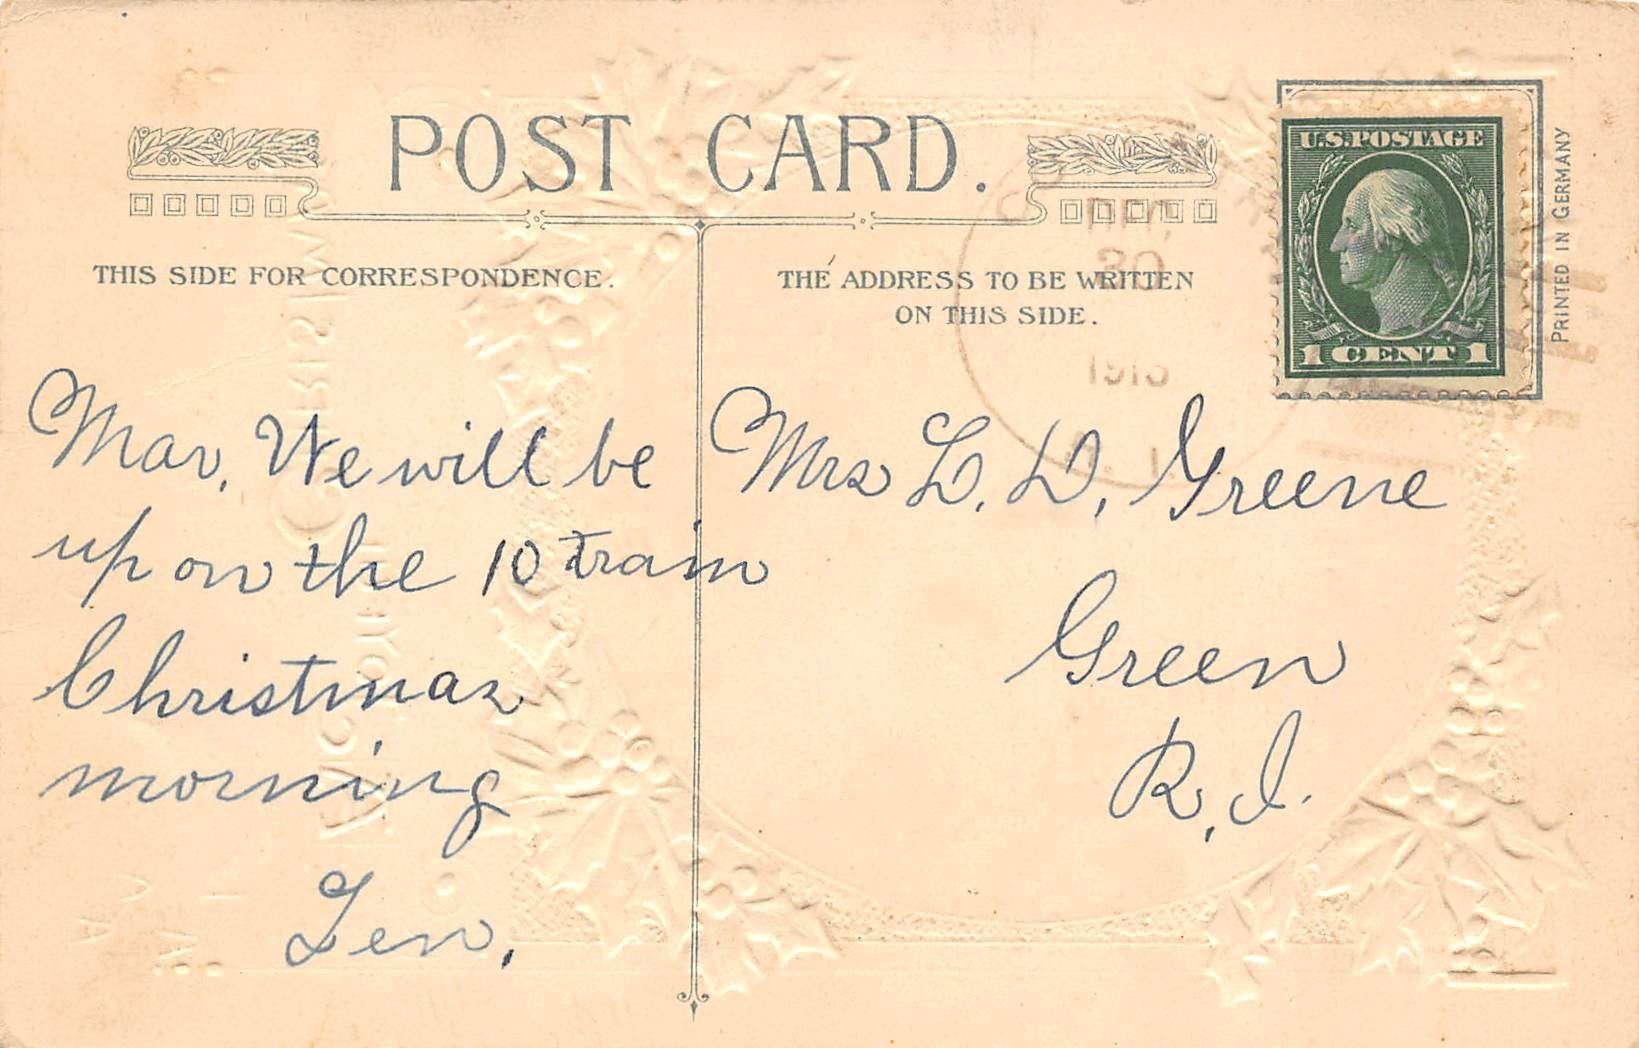 POST CARD.
THIS SIDE FOR CORRESPONDENCE.
THE ADDRESS TO BE WRITTEN
ON THIS SIDE.
U.S. POSTAGE
1 CENT 1
PRINTED IN GERMANY
1913
R.I.
Mar, We will be
up on the 10 train
Christmas
morning
Len,
Mrs L. D. Greene
Green
R.I.